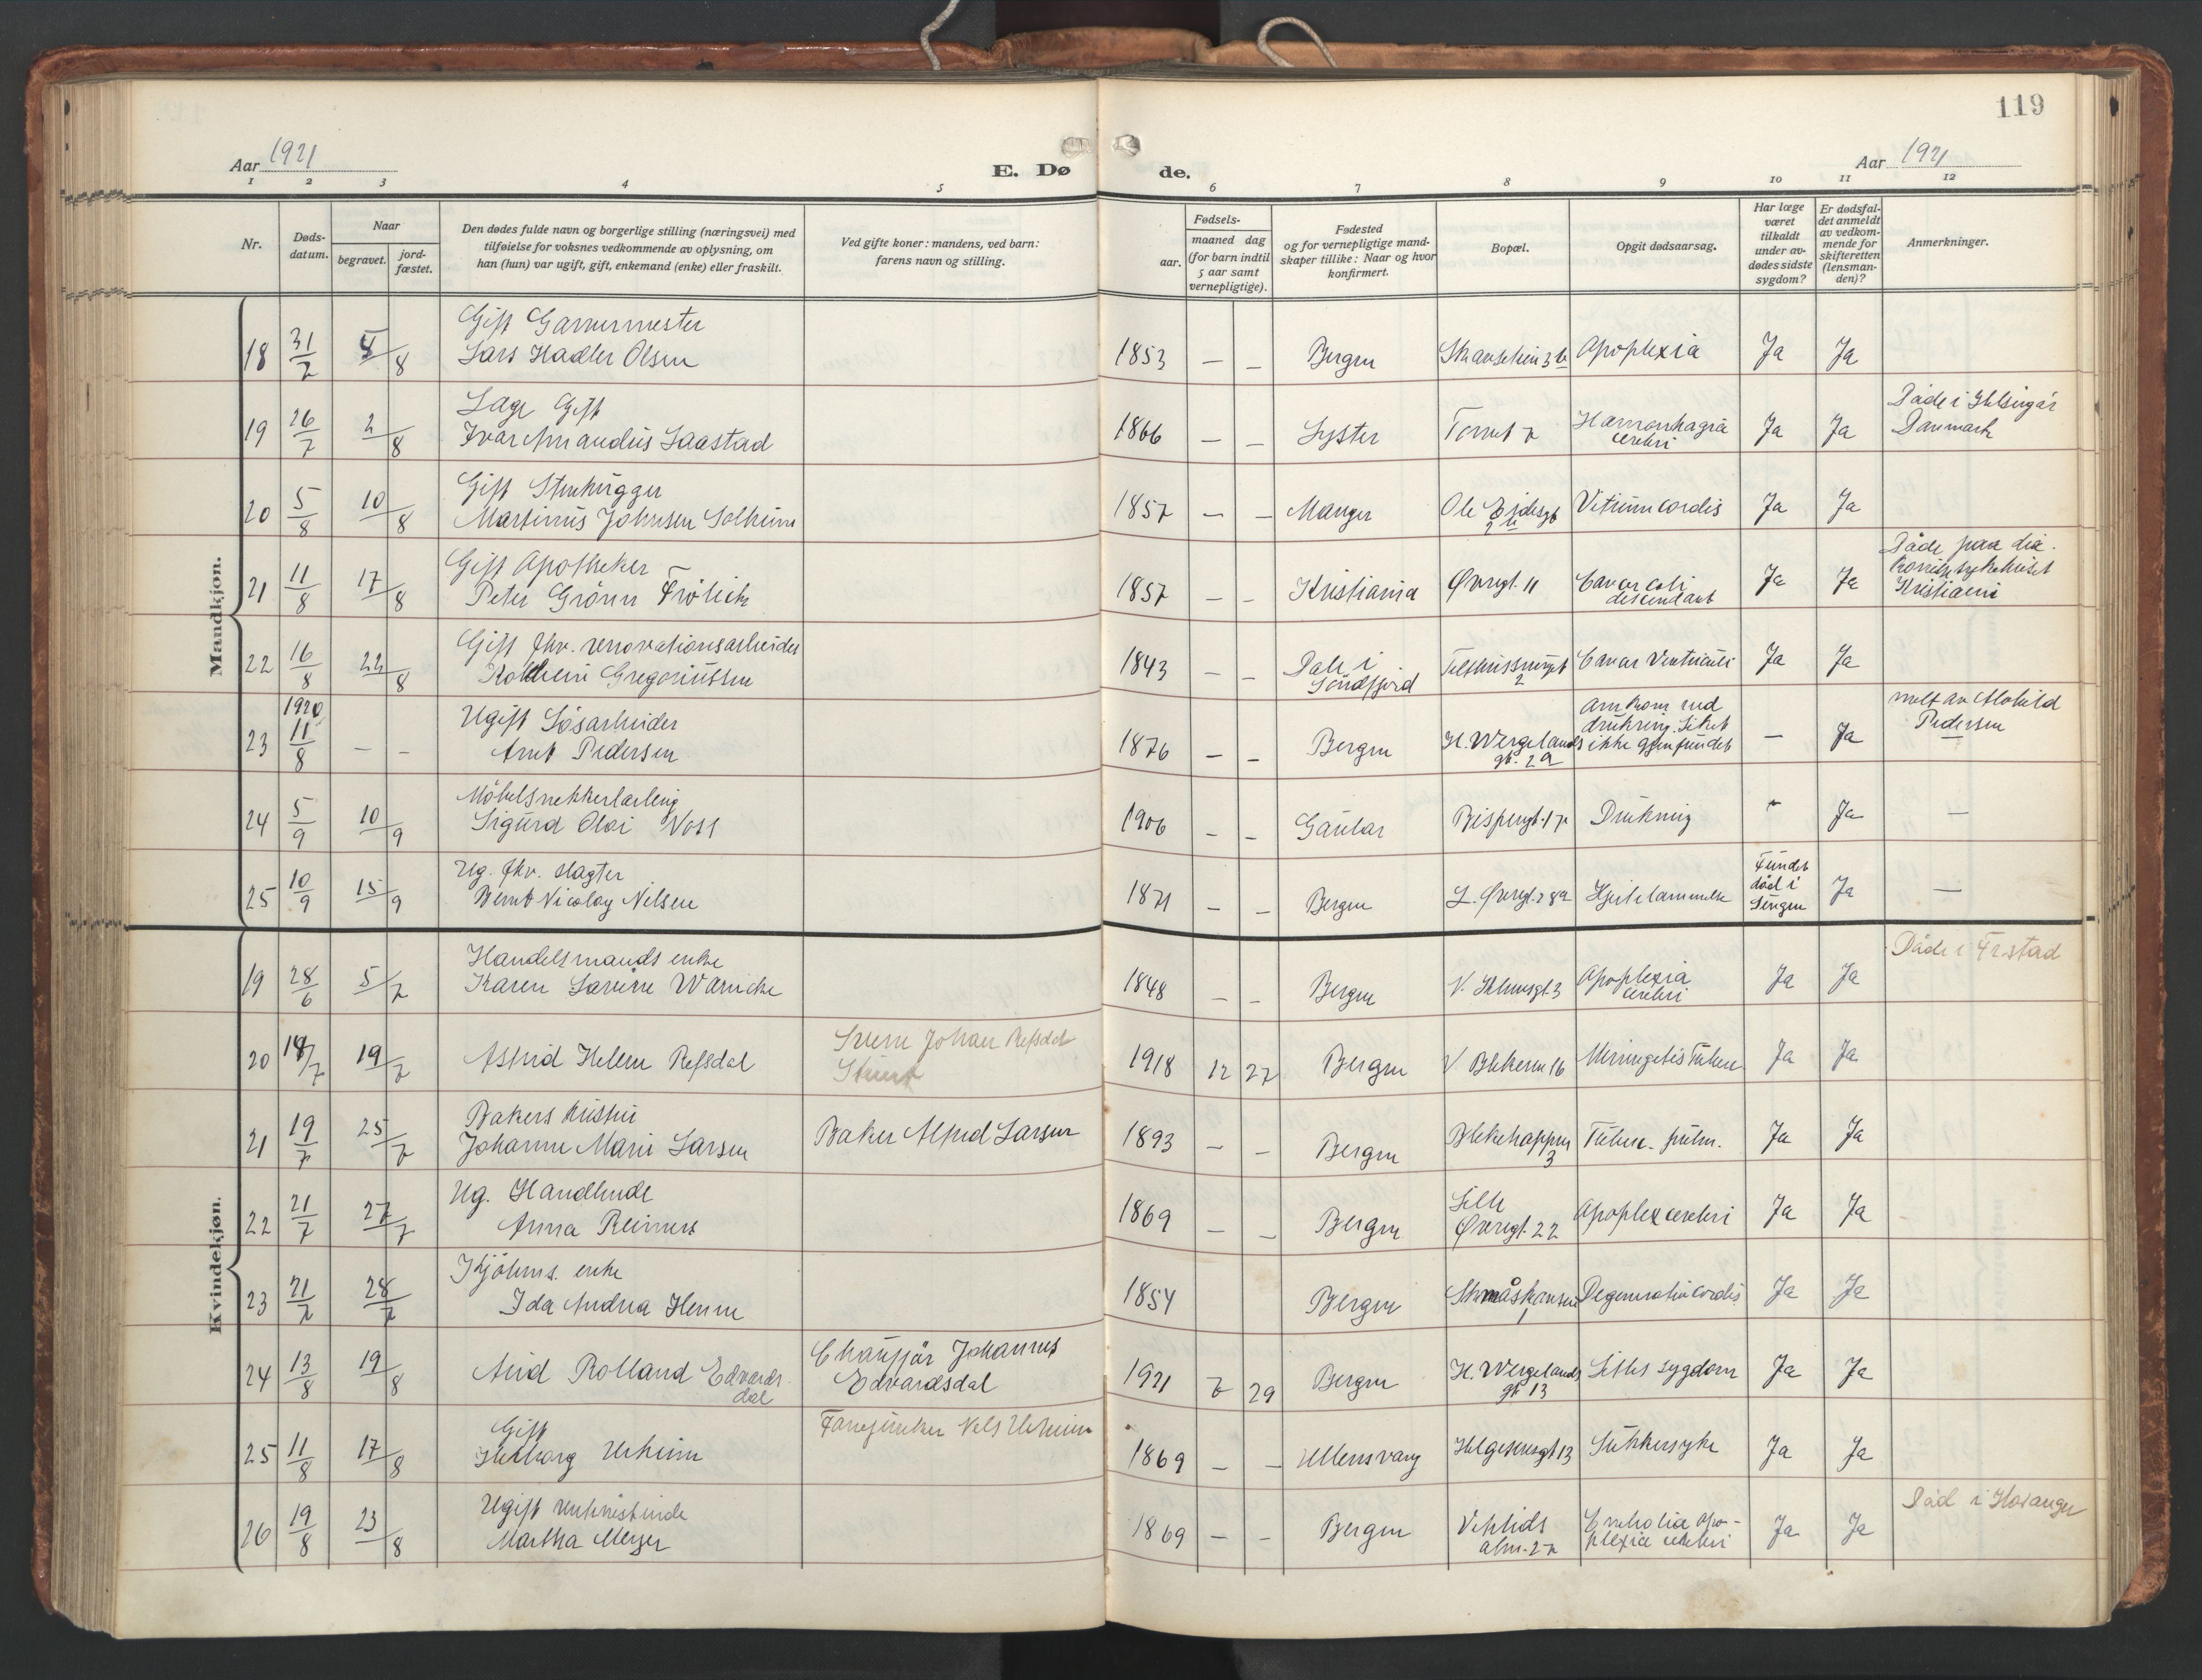 119
Aar 1921
E. Døde.
Aar 1921
1 2 3 4 5 6 7 8 9 10 11 12
Nr.
Døds-
datum.
Naar
begravet.
jord-
fæstet.
Den dødes fulde navn og borgerlige stilling (næringsvei) med
tilføielse for voksnes vedkommende av oplysning, om
han (hun) var ugift, gift, enkemand (enke) eller fraskilt.
Ved gifte koner: mandens, ved barn:
farens navn og stilling.
Fødsels-
aar.
maaned dag
(for barn indtil
5 aar samt
vernepligtige).
Fødested
og for vernepligtige mand-
skaper tillike: Naar og hvor
konfirmert.
Bopæl.
Opgit dødsaarsag.
Har læge
været
tilkaldt
under av-
dødes sidste
sygdom?
Er dødsfal-
det anmeldt
av vedkom-
mende for
skifteretten
(lensman-
den)?
Anmerkninger.
Mandkjøn.
Gift Garvermester
18 31/7 5/8 Lars Hadler Olsen 1853 — — Bergen 3b Apoplexia Ja Ja
Læge Gift
19 26/7 2/8 Ivar Amandus Laastad 1866 — — Lyster Torvet 7 Hæmorrhagia cerebri Ja Ja Döde i Helsingör Danmark
Gift Stenhugger
20 5/8 10/8 Martinus Johnsen Solheim 1857 — — Manger Ole 2 Vitium cordis Ja Ja
Gift Apotheker
21 11/8 17/8 Peter Grönn Frölich 1857 — — Kristiania Øvregt. 11 Cancer coli descendant Ja Ja Döde paa dia-
konissesykehuset
Kristiania
Gift fhv. renovationsarbeider
22 16/8 22/8 Gregoriussen 1843 — — Dale i Söndfjord 2 Cancer Ventriculi Ja Ja
1920 Ugift Lösarbeider
23 11/8 — — Arnt Pedersen 1876 — — Bergen H. Wergelands gt. 2a Omkom ved
drukning. Liket
ikke gjenfundet — Ja melt av Alvhild
Pedersen
Möbelsnekkerlærling
24 5/9 10/9 Sigurd Olai Voss 1906 — — Gaular Bispengt. 17 Drukning Ja —
Ug. fhv. slagter
25 10/9 15/9 Bernt Nicolay Nilsen 1871 — — Bergen L. Øvregt. 28a Hjertelammelse Fundet
död i
Sengen Ja —
Kvindekjøn.
Handelsmands enke
19 28/6 5/7 Karen Warncke 1848 — — Bergen 3 Apoplexia cerebri Ja Ja Döde i
20 14/7 19/7 Astrid Helene Refsdal Johan Refsdal
1918 12 27 Bergen V Blekeven 16 Meningitis Tuberc Ja Ja
Bakers hustru
21 19/7 25/7 Johanne Marie Larsen Baker Alfred Larsen 1893 — — Bergen 3 Tuberc. pulm. Ja Ja
Ug. Handlende
22 21/7 27/7 Anna Reimers 1869 — — Bergen Lille
Øvregt. 22 Apoplex cerebri Ja Ja
Kjöbms. enke
23 21/7 28/7 Ida Andrea 1854 Bergen 1 Degeneratio cordis Ja Ja
24 13/8 19/8 Rolland Edvards-
dal Chaufför Johannes
Edvardsdal 1921 7 29 Bergen H. Wergelands
gt 13 sygdom Ja Ja
Gift
25 11/8 17/8 Herborg Urheim Fanejunker Nels Urheim 1869 — — Ullensvang Helgesensgt 13 Sukkersyke Ja Ja
Ugift
26 19/8 23/8 Martha Meyer 1869 — — Bergen
alm. 27 Embolia apo-
plexia cerebri Ja Ja Död i